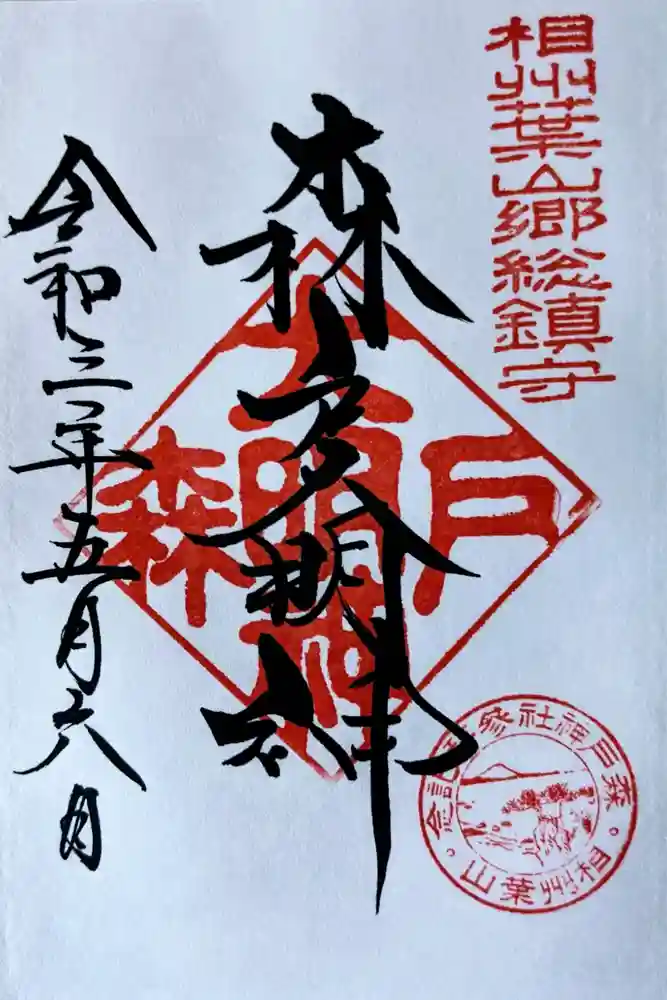 相州葉山郷総鎮守
森戸大明神
森戸大明神
令和三年五月六日
森戸神社参拝記念
相州葉山